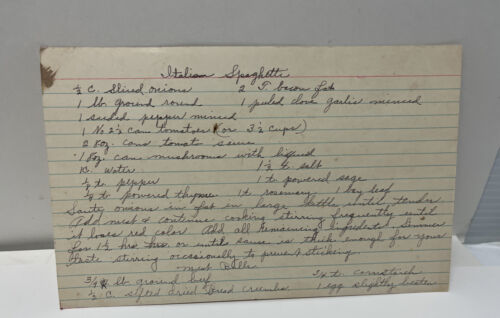 Italian Spaghetti
½ C. Sliced onions 2 T. bacon fat
1 lb ground round 1 peeled clove garlic minced
1 seeded pepper minced
1 No 2½ can tomatoes (or 3½ cups)
2 8oz. cans tomato sauce
1 8oz. can mushrooms with liquid
1C. Water 1½ t. salt
t. pepper 1 t. powered sage
t powered thyme 1t rosemary 1 bay leaf
Saute onions in fat in large kettle until tender
Add meat & continue cooking stirring frequently until
it loses red color. Add all remaining ingredients Simmer
for 1½ hrs or until sauce is thick enough for your
taste stirring occasionally to prevent sticking.
Meat Balls
3/4 lb ground beef t. cornstarch
½ C. sifted dried bread crumbs 1 egg slightly beaten